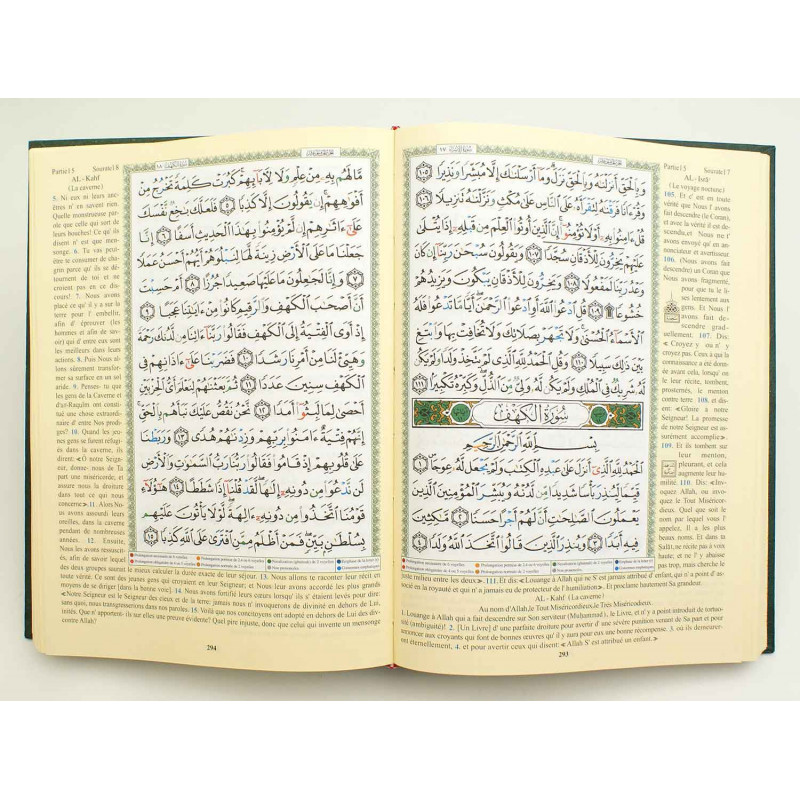 سورة الإسراء ١٧
وَبِٱلْحَقِّ أَنزَلْنَٰهُ وَبِٱلْحَقِّ نَزَلَ وَمَآ أَرْسَلْنَٰكَ إِلَّا مُبَشِّرًا وَنَذِيرًا ١٠٥
وَقُرْءَانًا فَرَقْنَٰهُ لِتَقْرَأَهُۥ عَلَى ٱلنَّاسِ عَلَىٰ مُكْثٍ وَنَزَّلْنَٰهُ تَنزِيلًا ١٠٦
قُلْ ءَامِنُوا۟ بِهِۦٓ أَوْ لَا تُؤْمِنُوٓا۟ إِنَّ ٱلَّذِينَ أُوتُوا۟ ٱلْعِلْمَ مِن قَبْلِهِۦٓ إِذَا يُتْلَىٰ
عَلَيْهِمْ يَخِرُّونَ لِلْأَذْقَانِ سُجَّدًا ١٠٧ وَيَقُولُونَ سُبْحَٰنَ رَبِّنَآ إِن كَانَ
وَعْدُ رَبِّنَا لَمَفْعُولًا ١٠٨ وَيَخِرُّونَ لِلْأَذْقَانِ يَبْكُونَ وَيَزِيدُهُمْ
خُشُوعًا ١٠٩ قُلِ ٱدْعُوا۟ ٱللَّهَ أَوِ ٱدْعُوا۟ ٱلرَّحْمَٰنَ أَيًّا مَّا تَدْعُوا۟ فَلَهُ
ٱلْأَسْمَآءُ ٱلْحُسْنَىٰ وَلَا تَجْهَرْ بِصَلَاتِكَ وَلَا تُخَافِتْ بِهَا وَٱبْتَغِ
بَيْنَ ذَٰلِكَ سَبِيلًا ١١٠ وَقُلِ ٱلْحَمْدُ لِلَّهِ ٱلَّذِى لَمْ يَتَّخِذْ وَلَدًا وَلَمْ يَكُن
لَّهُۥ شَرِيكٌ فِى ٱلْمُلْكِ وَلَمْ يَكُن لَّهُۥ وَلِىٌّ مِّنَ ٱلذُّلِّ وَكَبِّرْهُ تَكْبِيرًۢا ١١١
سُورَةُ الكَهْفِ
بِسْمِ ٱللَّهِ ٱلرَّحْمَٰنِ ٱلرَّحِيمِ
ٱلْحَمْدُ لِلَّهِ ٱلَّذِىٓ أَنزَلَ عَلَىٰ عَبْدِهِ ٱلْكِتَٰبَ وَلَمْ يَجْعَل لَّهُۥ عِوَجَا ١
قَيِّمًا لِّيُنذِرَ بَأْسًا شَدِيدًا مِّن لَّدُنْهُ وَيُبَشِّرَ ٱلْمُؤْمِنِينَ ٱلَّذِينَ
يَعْمَلُونَ ٱلصَّٰلِحَٰتِ أَنَّ لَهُمْ أَجْرًا حَسَنًا ٢ مَّٰكِثِينَ
فِيهِ أَبَدًا ٣ وَيُنذِرَ ٱلَّذِينَ قَالُوا۟ ٱتَّخَذَ ٱللَّهُ وَلَدًا ٤
Partie15 Sourate17
AL - Isrâ'
(Le voyage nocturne)
105. Et c'est en toute
vérité que Nous l' avons
fait descendre (le Coran),
et avec la vérité il est descendu,
et Nous ne t' avons
envoyé qu' en annonciateur
et avertisseur.
106. (Nous avons fait
descendre) un Coran que
Nous avons fragmenté,
pour que tu le lises
lentement aux
gens. Et Nous
l' avons fait descendre
graduellement.
107. Dis:
≪ Croyez y ou n' y
croyez pas. Ceux à qui la
connaissance a été donnée
avant cela, lorsqu' on le
leur récite, tombent,
prosternés, le menton
contre terre. 108. et disent:
≪Gloire à notre
Seigneur! La promesse
de notre Seigneur est
assurément accomplie≫.
109. Et ils tombent
sur leur menton,
pleurant, et cela
augmente leur humilité.
110. Dis: ≪Invoquez
Allah, ou invoquez
le Tout Miséricordieux.
Quel que soit le
nom par lequel vous l'
appelez, Il a les plus
beaux noms. Et dans ta
Salât, ne récite pas à voix
haute; et ne l' y abaisse
pas trop, mais cherche le
juste milieu entre les deux≫.111. Et dis: ≪Louange à Allah qui ne S' est jamais attribué d' enfant, qui n' a point d' associé
en la royauté et qui n' a jamais eu de protecteur de l' humiliation≫. Et proclame hautement Sa grandeur.
AL - Kahf (La caverne)
Au nom d'Allah,le Tout Miséricordieux,le Très Miséricordieux.
1. Louange à Allah qui a fait descendre sur Son serviteur (Muhammad), le Livre, et n' y a point introduit de tortuosité
(ambiguïté)! 2. [Un Livre] d' une parfaite droiture pour avertir d' une sévère punition venant de Sa part et pour
annoncer aux croyants qui font de bonnes œuvres qu' il y aura pour eux une bonne récompense. 3. où ils demeureront
éternellement, 4. et pour avertir ceux qui disent: ≪Allah S' est attribué un enfant.≫
293
سورة الكهف ١٨
مَّا لَهُم بِهِۦ مِنْ عِلْمٍ وَلَا لِءَابَآئِهِمْ كَبُرَتْ كَلِمَةً تَخْرُجُ مِنْ
أَفْوَٰهِهِمْ إِن يَقُولُونَ إِلَّا كَذِبًا ٥ فَلَعَلَّكَ بَٰخِعٌ نَّفْسَكَ
عَلَىٰٓ ءَاثَٰرِهِمْ إِن لَّمْ يُؤْمِنُوا۟ بِهَٰذَا ٱلْحَدِيثِ أَسَفًا ٦ إِنَّا
جَعَلْنَا مَا عَلَى ٱلْأَرْضِ زِينَةً لَّهَا لِنَبْلُوَهُمْ أَيُّهُمْ أَحْسَنُ عَمَلًا
٧ وَإِنَّا لَجَٰعِلُونَ مَا عَلَيْهَا صَعِيدًا جُرُزًا ٨ أَمْ حَسِبْتَ
أَنَّ أَصْحَٰبَ ٱلْكَهْفِ وَٱلرَّقِيمِ كَانُوا۟ مِنْ ءَايَٰتِنَا عَجَبًا ٩
إِذْ أَوَى ٱلْفِتْيَةُ إِلَى ٱلْكَهْفِ فَقَالُوا۟ رَبَّنَآ ءَاتِنَا مِن لَّدُنكَ رَحْمَةً
وَهَيِّئْ لَنَا مِنْ أَمْرِنَا رَشَدًا ١٠ فَضَرَبْنَا عَلَىٰٓ ءَاذَانِهِمْ فِى
ٱلْكَهْفِ سِنِينَ عَدَدًا ١١ ثُمَّ بَعَثْنَٰهُمْ لِنَعْلَمَ أَىُّ ٱلْحِزْبَيْنِ
أَحْصَىٰ لِمَا لَبِثُوٓا۟ أَمَدًا ١٢ نَّحْنُ نَقُصُّ عَلَيْكَ نَبَأَهُم بِٱلْحَقِّ
إِنَّهُمْ فِتْيَةٌ ءَامَنُوا۟ بِرَبِّهِمْ وَزِدْنَٰهُمْ هُدًى ١٣ وَرَبَطْنَا
عَلَىٰ قُلُوبِهِمْ إِذْ قَامُوا۟ فَقَالُوا۟ رَبُّنَا رَبُّ ٱلسَّمَٰوَٰتِ وَٱلْأَرْضِ
لَن نَّدْعُوَا۟ مِن دُونِهِۦٓ إِلَٰهًا لَّقَدْ قُلْنَآ إِذًا شَطَطًا ١٤ هَٰٓؤُلَآءِ
قَوْمُنَا ٱتَّخَذُوا۟ مِن دُونِهِۦٓ ءَالِهَةً لَّوْلَا يَأْتُونَ عَلَيْهِم
بِسُلْطَٰنٍۭ بَيِّنٍ فَمَنْ أَظْلَمُ مِمَّنِ ٱفْتَرَىٰ عَلَى ٱللَّهِ كَذِبًا ١٥
Partie15 Sourate18
AL - Kahf
(La caverne)
5. Ni eux ni leurs ancêtres
n' en savent rien.
Quelle monstrueuse parole
que celle qui sort de
leurs bouches! Ce qu' ils
disent n' est que mensonge.
6. Tu vas peut-être
te consumer de chagrin
parce qu' ils se détournent
de toi et ne
croient pas en ce discours!
7. Nous avons
placé ce qu' il y a sur la
terre pour l' embellir,
afin d' éprouver (les
hommes et afin de savoir)
qui d' entre eux sont
les meilleurs dans leurs
actions. 8. Puis Nous allons
sûrement transformer
sa surface en un sol
aride. 9. Penses- tu
que les gens de la Caverne et
d'ar-Raquîm ont constitué
une chose extraordinaire
d' entre Nos prodiges?
10. Quand les jeunes
gens se furent réfugiés
dans la caverne, ils
dirent: ≪Ô notre Seigneur,
donne- nous de Ta
part une miséricorde; et
assure nous la droiture
dans tout ce qui nous
concerne≫.11. Alors Nous
avons assourdi leurs
oreilles, dans la caverne
pendant de nombreuses
années. 12. Ensuite,
Nous les avons ressuscités,
afin de savoir lequel
des deux groupes saurait le mieux calculer la durée exacte de leur séjour. 13. Nous allons te raconter leur récit en
toute vérité. Ce sont des jeunes gens qui croyaient en leur Seigneur; et Nous leurs avons accordé les plus grands
moyens de se diriger [dans la bonne voie]. 14. Nous avons fortifié leurs cœurs lorsqu' ils s' étaient levés pour dire:
≪Notre Seigneur est le Seigneur des cieux et de la terre: jamais nous n' invoquerons de divinité en dehors de Lui,
sans quoi, nous transgresserions dans nos paroles. 15. Voilà que nos concitoyens ont adopté en dehors de Lui des divinités.
Que n' apportent- ils sur elles une preuve évidente? Quel pire injuste, donc que celui qui invente un mensonge
contre Allah?
294